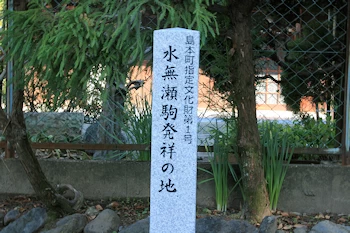 島本町指定文化財第1号
水無瀬駒発祥の地